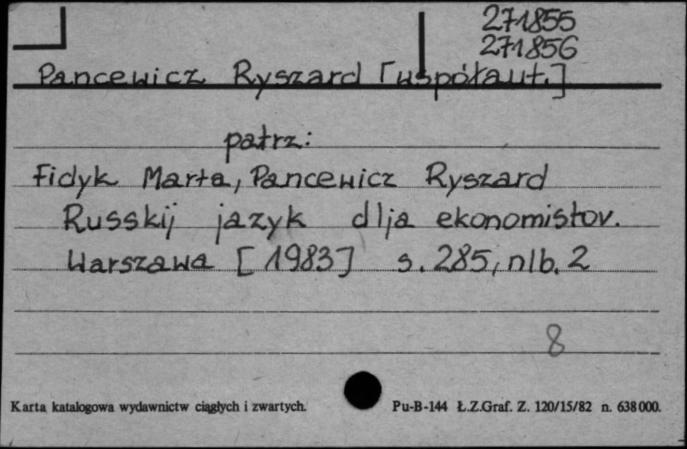 271855
271856
Pancewicz Ryszard [współaut.]
patrz:
Fidyk Marta, Pancewicz Ryszard
Russkij jazyk dlja ekonomistov.
Warszawa [1983] s. 285, nlb. 2
8
Karta katalogowa wydawnictw ciągłych i zwartych. Pu-B-144 Ł.Z.Graf. Z. 120/15/82 n. 638 000.